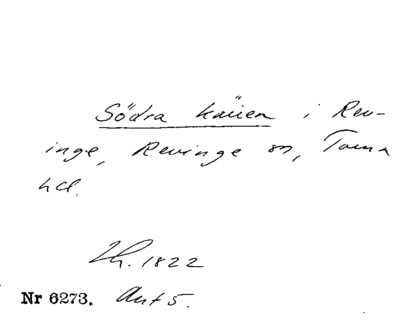 Södra källen i Rev-
inge, Revinge sn, Torna
hd.
Lh. 1822
Nr 6273. Ant 5.